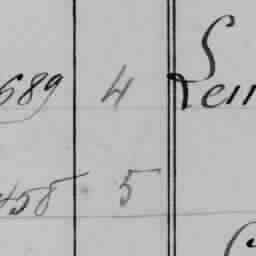 689 4 Lein
458 5